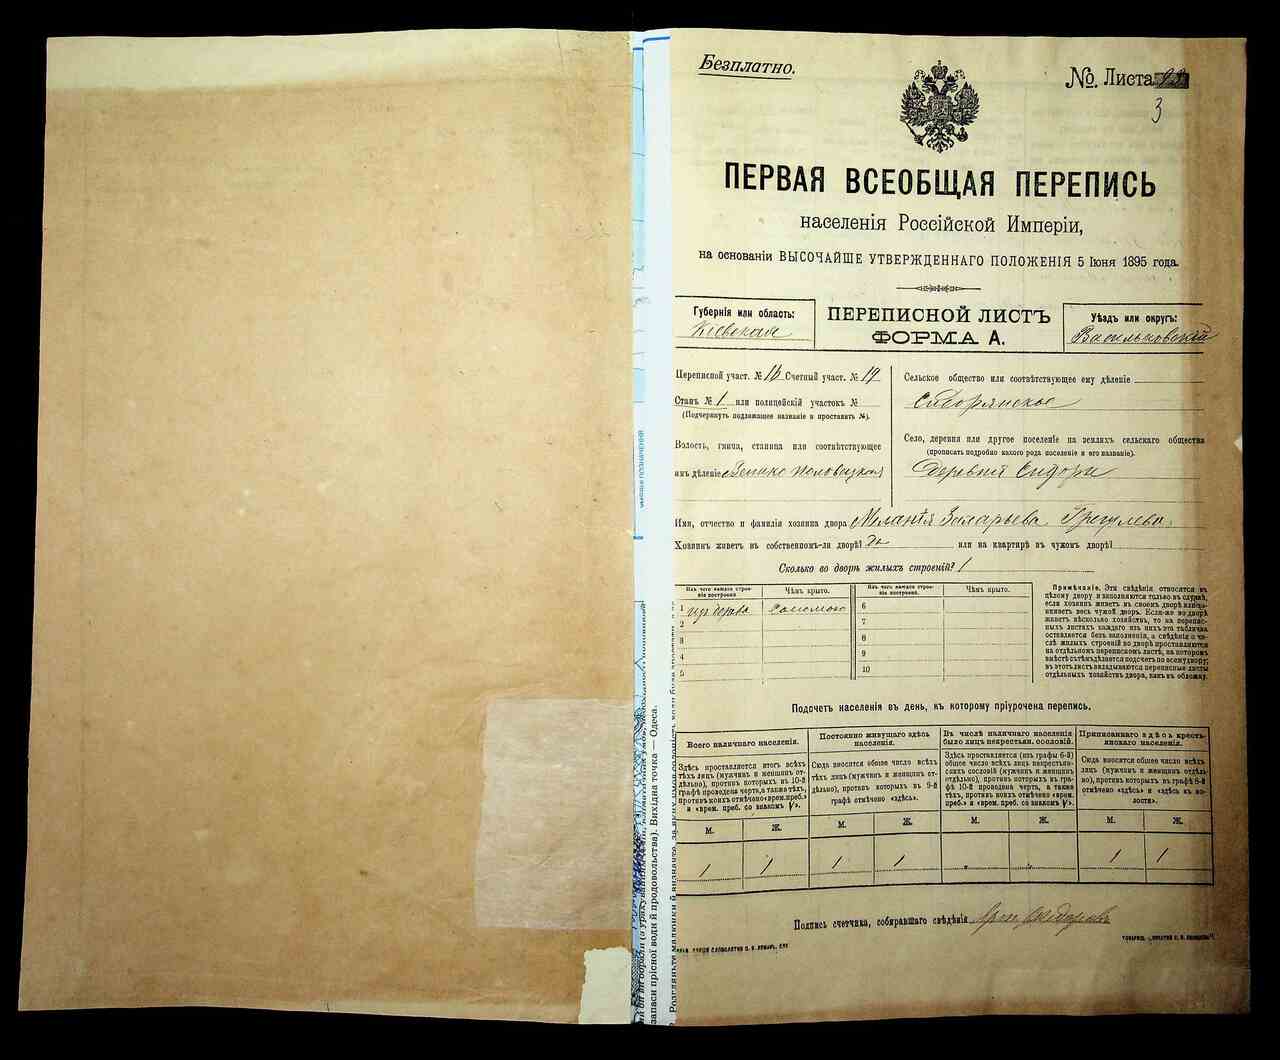 Безплатно.
№. Листа
3
ПЕРВАЯ ВСЕОБЩАЯ ПЕРЕПИСЬ
населенія Россійской Имперіи,
на основаніи ВЫСОЧАЙШЕ УТВЕРЖДЕННАГО ПОЛОЖЕНІЯ 5 Іюня 1895 года.
Губернія или область:
Кіевская
ПЕРЕПИСНОЙ ЛИСТЪ
ФОРМА А.
Уѣздъ или округъ:
Васильковскій
Переписной участ. № 16 Счетный участ. № 19
Станъ № 1 или полицейскій участокъ №
(Подчеркнуть подлежащее названіе и проставить №).
Волость, гмина, станица или соотвѣтствующее
имъ дѣленіе Велико Половецкая
Сельское общество или соотвѣтствующее ему дѣленіе
Сидорянское
Село, деревня или другое поселеніе на земляхъ сельскаго общества
(прописать подробно какого рода поселеніе и его названіе).
Деревня Сидори
Имя, отчество и фамилія хозяина двора Меланія Захарьева
Хозяинъ живетъ въ собственномъ-ли дворѣ? да или на квартирѣ въ чужомъ дворѣ?
Сколько во дворѣ жилыхъ строеній? 1
Изъ чего жилыя строенія построены. Чѣмъ крыто. Изъ чего жилыя строенія построены. Чѣмъ крыто.
1 изъ дерева Соломою 6
2 7
3 8
4 9
5 10
Примѣчаніе. Эти свѣдѣнія относятся къ
цѣлому двору и заполняются только въ случаѣ,
если хозяинъ живетъ въ своемъ дворѣ или за-
нимаетъ весь чужой дворъ. Если-же во дворѣ
живетъ нѣсколько хозяйствъ, то на перепис-
ныхъ листахъ каждаго изъ нихъ эта табличка
оставляется безъ заполненія, а свѣдѣнія о чи-
слѣ жилыхъ строеній во дворѣ проставляются
на отдѣльномъ переписномъ листѣ, на которомъ
вмѣстѣ съ тѣмъ дѣлается подсчетъ по всему двору;
въ этотъ листъ вкладываются переписные листы
отдѣльныхъ хозяйствъ двора, какъ въ обложку.
Подсчетъ населенія въ день, къ которому пріурочена перепись.
Всего наличнаго населенія.
Здѣсь проставляется итогъ всѣхъ
тѣхъ лицъ (мужчинъ и женщинъ от-
дѣльно), противъ которыхъ въ 10-й
графѣ проведена черта, а также тѣхъ,
противъ коихъ отмѣчено «врем. преб.»
и «врем. преб. со знакомъ V».
Постоянно живущаго здѣсь
населенія.
Сюда вносится общее число всѣхъ
тѣхъ лицъ (мужчинъ и женщинъ от-
дѣльно), противъ которыхъ въ 9-й
графѣ отмѣчено «здѣсь».
Въ числѣ наличнаго населенія
было лицъ некрестьян. сословій.
Здѣсь проставляется (изъ графы 6-й)
общее число всѣхъ лицъ некрестьян-
скихъ сословій (мужчинъ и женщинъ
отдѣльно), противъ которыхъ въ гра-
фѣ 10-й проведена черта, а также
тѣхъ, противъ коихъ отмѣчено «врем.
преб.» и «врем. преб. со знакомъ V».
Приписаннаго здѣсь кресть-
янскаго населенія.
Сюда вносится общее число всѣхъ
лицъ (мужчинъ и женщинъ отдѣль-
но), противъ которыхъ въ графѣ 8-й
отмѣчено «здѣсь» и «здѣсь къ во-
лости».
М. Ж. М. Ж. М. Ж. М. Ж.
1 1 1 1 - - 1 1
Подпись счетчика, собиравшаго свѣдѣнія
запаси прісної води й продовольства). Вихідна точка — Одеса.